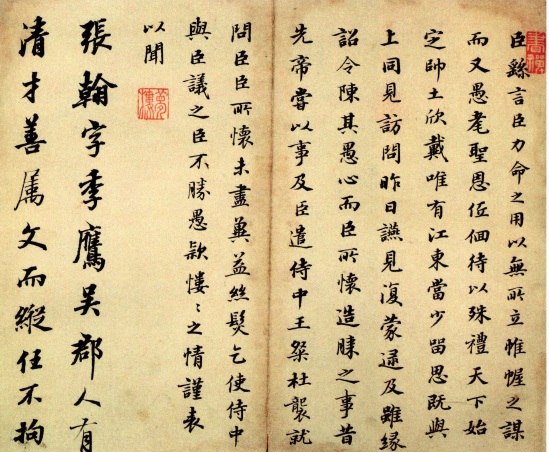 臣繇言臣力命之用以無所立帷幄之謀
而又愚耄聖恩低佪待以殊禮天下始
定師土欣戴唯有江東當少留思既與
上同見訪問昨日讌見復蒙逮及雖緣
詔令陳其愚心而臣所懷造膝之事昔
先帝嘗以事及臣遣侍中王粲杜襲就
問臣臣所懷未盡冀益絲髮乞使侍中
與臣議之臣不勝愚款慺〻之情謹表
以聞
張翰字季鷹吳郡人有
清才善屬文而縱任不拘